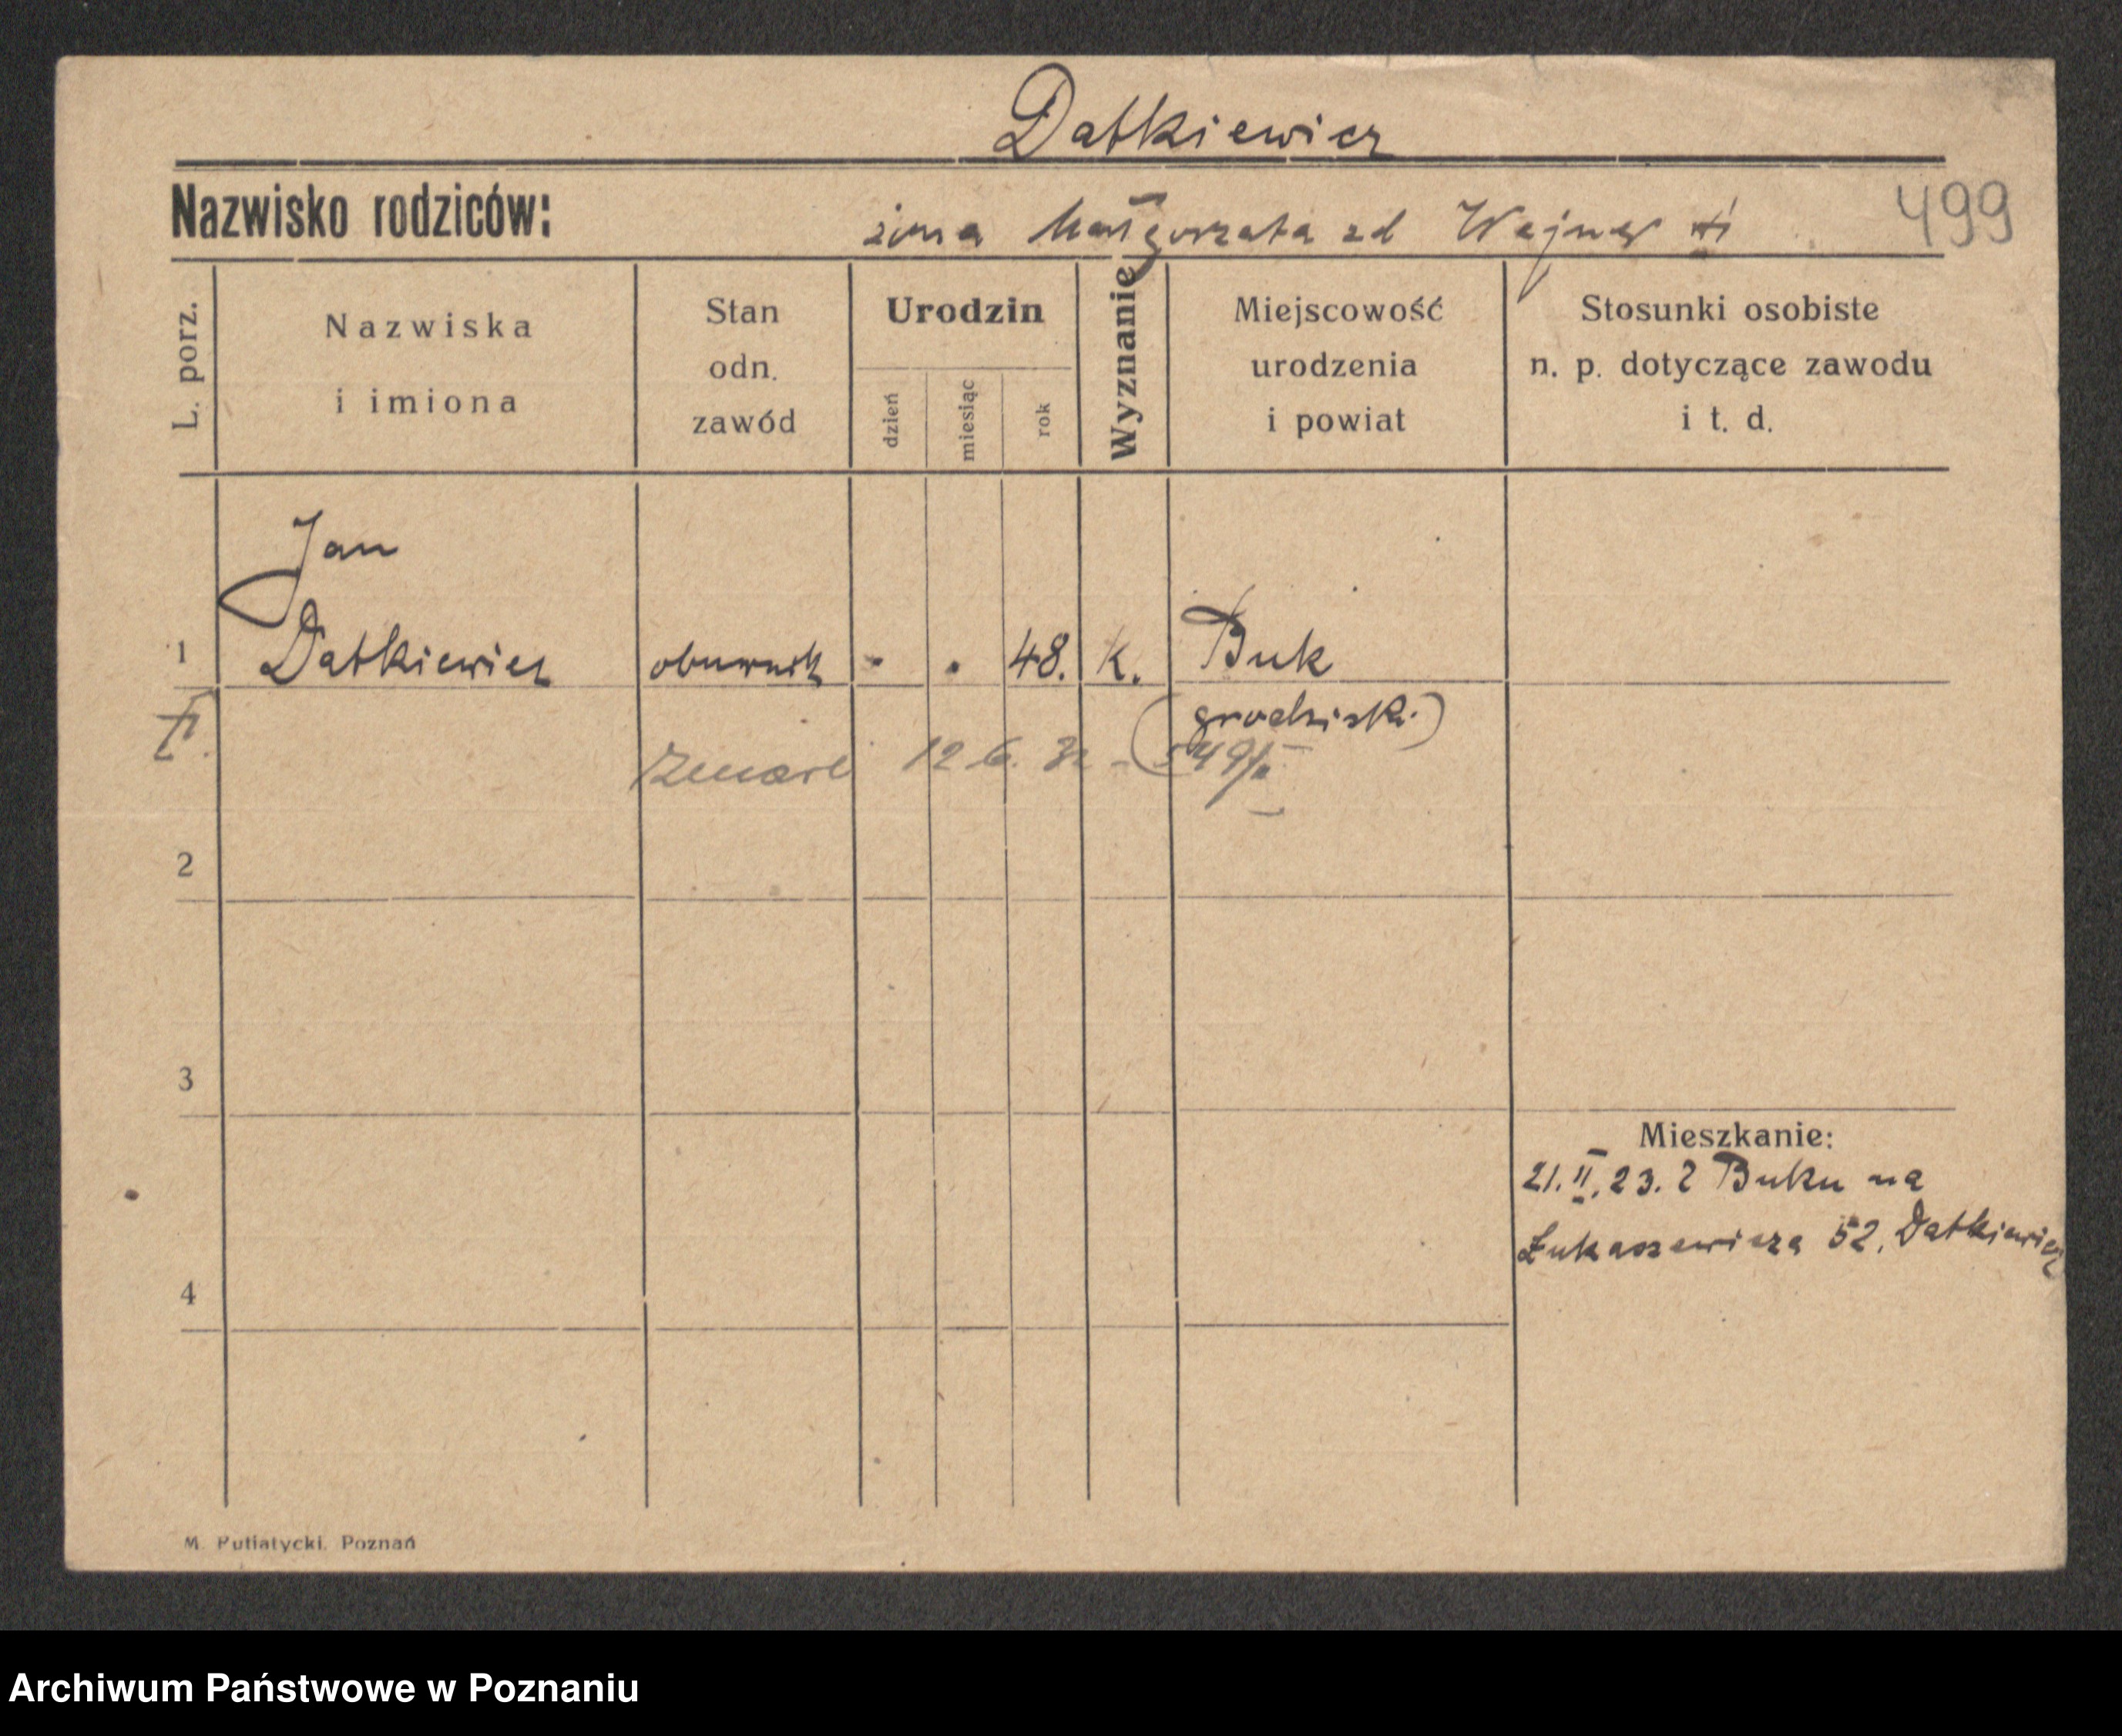 Datkiewicz
Nazwisko rodziców:
żona Małgorzata zd
499
L. porz.
Nazwiska
i imiona
Stan
odn.
zawód
Urodzin
dzień
miesiąc
rok
Wyznanie
Miejscowość
urodzenia
i powiat
Stosunki osobiste
n. p. dotyczące zawodu
i t. d.
Jan
1 Datkiewicz obuwnik - . 48. K. Buk
(grodziski)
Zmarł 12 6. 32 -
2
3
Mieszkanie:
21.II.23. z Buku na
Łukaszewicza 52, Datkiewicz
4
M. Putiatycki. Poznań
Archiwum Państwowe w Poznaniu